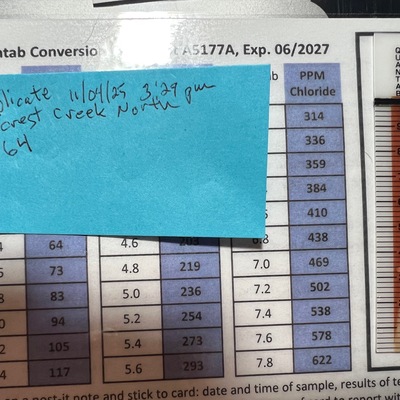 ntab Conversio A5177A, Exp. 06/2027
plicate 11/04/25 3:29 pm
orest Creek North
64
PPM
Chloride
314
336
359
384
410
6.8 438
64 4.6 203 7.0 469
73 4.8 219 7.2 502
83 5.0 236 7.4 538
94 5.2 254 7.6 578
105 5.4 273 7.8 622
117 5.6 293
on a post-it note and stick to card: date and time of sample, results of te
QUANTAB